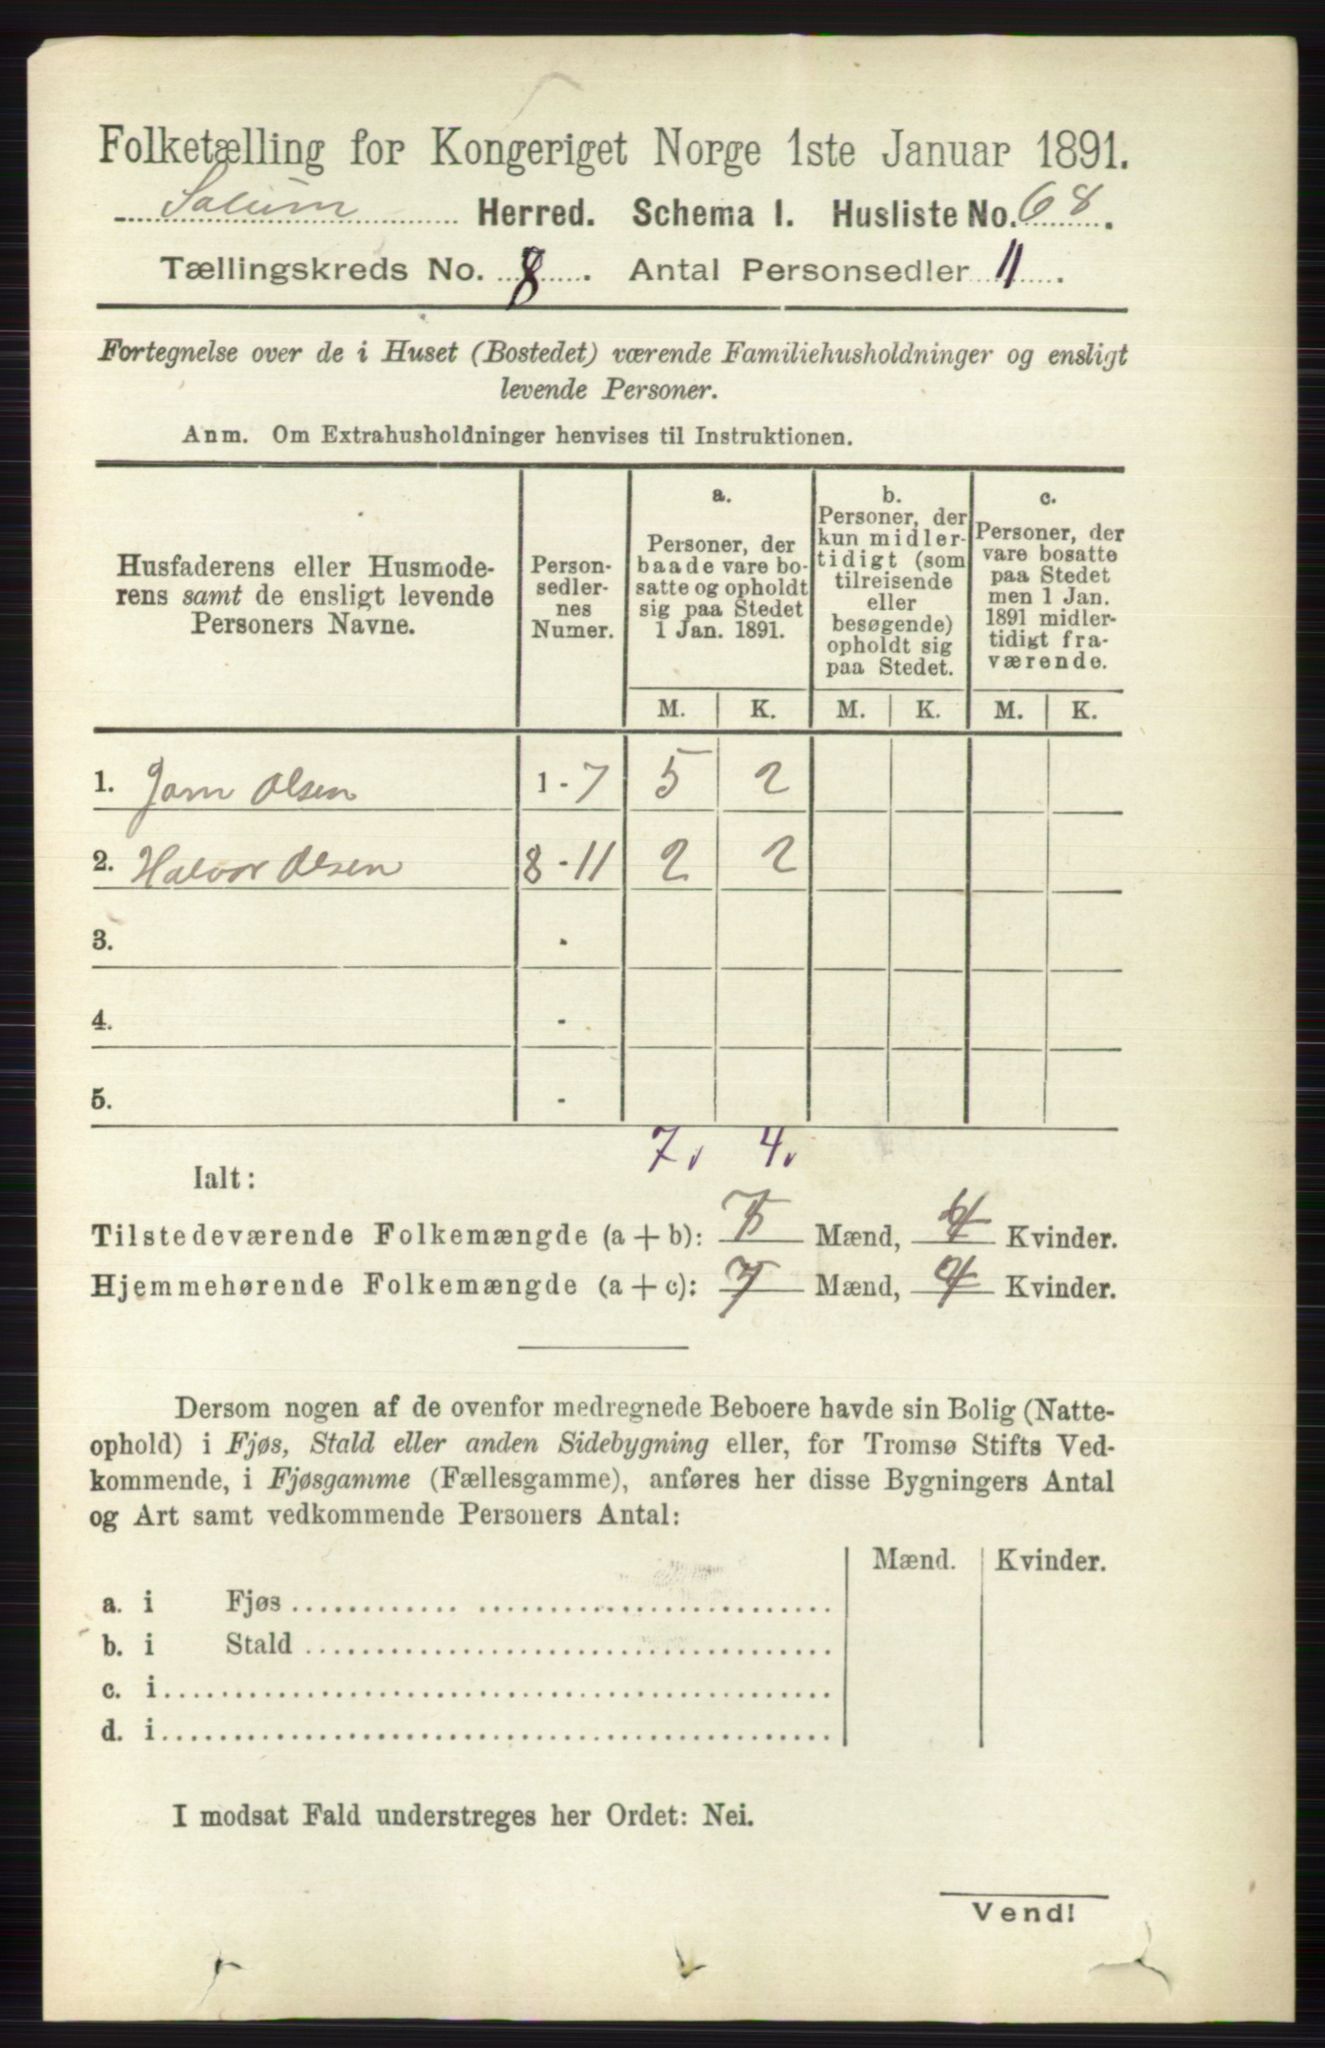 Folketælling for Kongeriget Norge 1ste Januar 1891.
Solum Herred. Schema I. Husliste No. 68.
Tællingskreds No. 8. Antal Personsedler 11.
Fortegnelse over de i Huset (Bostedet) værende Familiehusholdninger og ensligt
levende Personer.
Anm. Om Extrahusholdninger henvises til Instruktionen.
Husfaderens eller Husmode-
rens samt de ensligt levende
Personers Navne.
Person-
sedler-
nes
Numer.
a.
Personer, der
baade vare bo-
satte og opholdt
sig paa Stedet
1 Jan. 1891.
b.
Personer, der
kun midler-
tidigt (som
tilreisende
eller
besøgende)
opholdt sig
paa Stedet.
c.
Personer, der
vare bosatte
paa Stedet
men 1 Jan.
1891 midler-
tidigt fra-
værende.
M. K. M. K. M. K.
1. Olsen 1-7 5 2
2. Halvor Olsen 8-11 2 2
3. -
4. -
5. -
7. 4.
Ialt:
Tilstedeværende Folkemængde (a + b): 7 Mænd, 4 Kvinder.
Hjemmehørende Folkemængde (a + c): 7 Mænd, 4 Kvinder.
Dersom nogen af de ovenfor medregnede Beboere havde sin Bolig (Natte-
ophold) i Fjøs, Stald eller anden Sidebygning eller, for Tromsø Stifts Ved-
kommende, i Fjøsgamme (Fællesgamme), anføres her disse Bygningers Antal
og Art samt vedkommende Personers Antal:
Mænd. Kvinder.
a. i Fjøs
b. i Stald
c. i
d. i
I modsat Fald understreges her Ordet: Nei.
Vend!